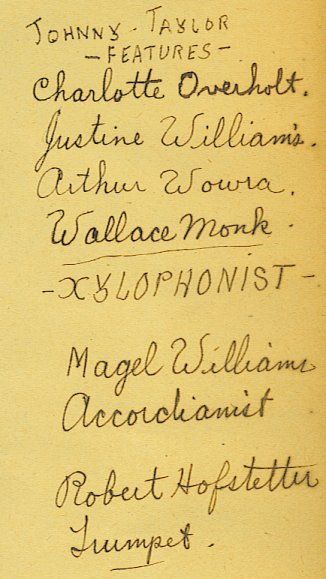 JOHNNY TAYLOR
- FEATURES -
Charlotte Overholt.
Justine William's.
Arthur Wowra.
Wallace Monk.
- XYLOPHONIST -
Magel Williams
Accordianist
Robert Hofstetter
Trumpet.